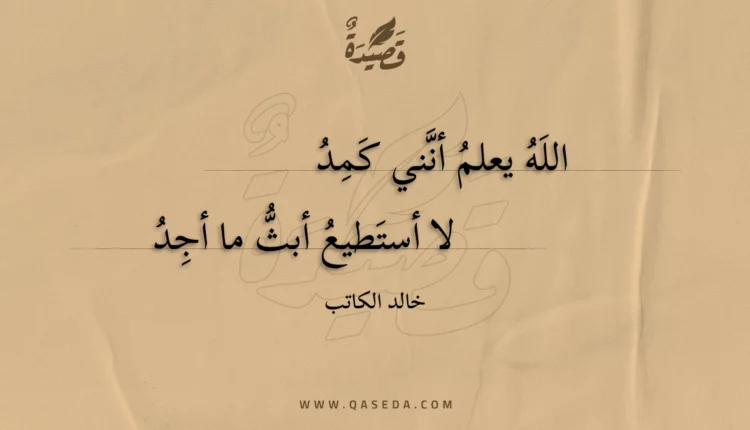 قَصِيدَةٌ
اللَهُ يعلمُ أنَّني كَمِدُ
لا أستَطيعُ أبثُّ ما أجِدُ
خالد الكاتب
WWW.QASEDA.COM